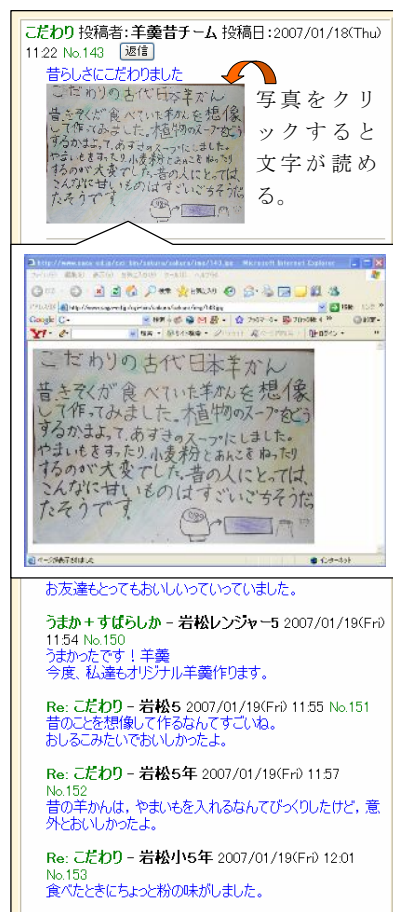 こだわり 投稿者：羊羹昔チーム 投稿日：2007/01/18(Thu)
11:22 No.143 返信
昔らしさにこだわりました
こだわりの古代日本羊かん
昔きぞくが食べていた羊かんを想像
して作ってみました。植物のスープをどう
するかまよって、あずきのスープにしました。
やまいもをすったり、小麦粉とあんこをねったり
するのが大変でした。昔の人にとっては、
こんなに甘いものはすごいごちそうだ
たそうです。
写真をクリ
ックすると
文字が読め
る。
こだわりの古代日本羊かん
昔きぞくが食べていた羊かんを想像
して作ってみました。植物のスープをどう
するかまよって、あずきのスープにしました。
やまいもをすったり、小麦粉とあんこをねったり
するのが大変でした。昔の人にとっては、
こんなに甘いものはすごいごちそうだ
たそうです。
ページが表示されました
インターネット
お友達もとってもおいしいっていっていました。
うまか＋すばらしか － 岩松レンジャー5 2007/01/19(Fri)
11:54 No.150
うまかったです！羊羹
今度、私達もオリジナル羊羹作ります。
Re: こだわり － 岩松5 2007/01/19(Fri) 11:55 No.151
昔のことを想像して作るなんてすごいね。
おしるこみたいでおいしかったよ。
Re: こだわり － 岩松5年 2007/01/19(Fri) 11:57
No.152
昔の羊かんは，やまいもを入れるなんてびっくりしたけど，意
外とおいしかったよ。
Re: こだわり － 岩松小5年 2007/01/19(Fri) 12:01
No.153
食べたときにちょっと粉の味がしました。